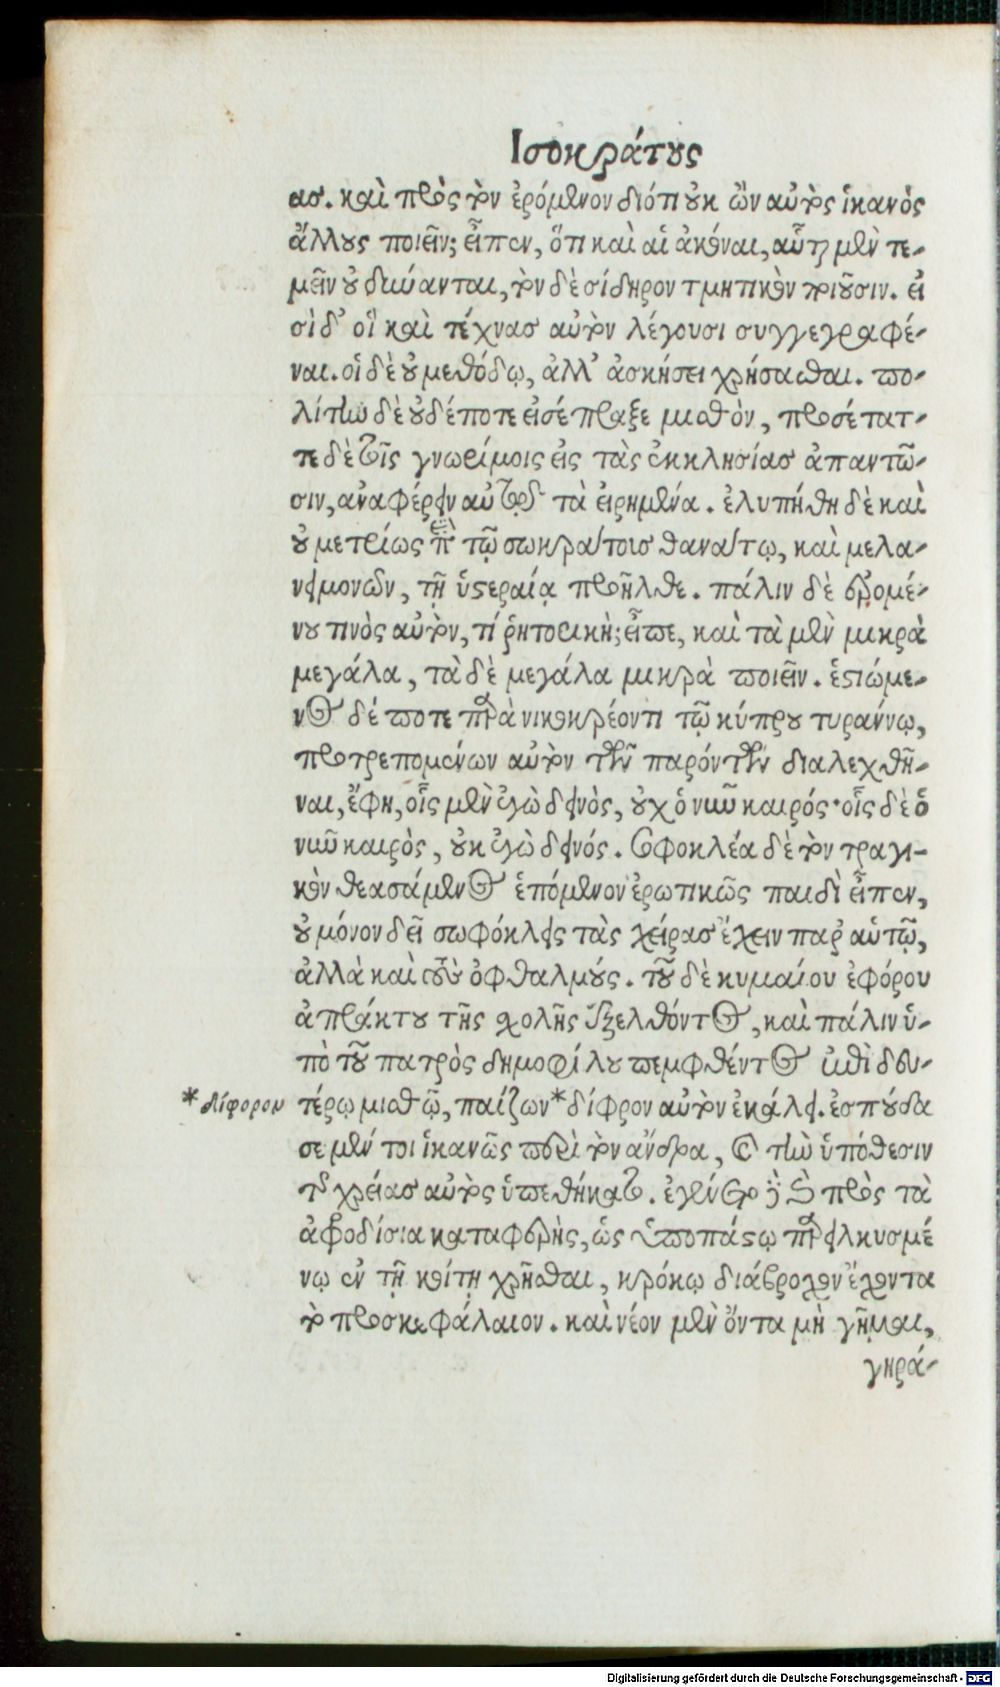 Ισοκράτους
ας. καὶ πρὸς τὸν ἐρόμενον διότι οὐκ ὢν αὐτὸς ἱκανὸς
ἄλλους ποιεῖν; εἶπεν, ὅτι καὶ αἱ ἀκόναι, αὗται μὲν τε-
μεῖν οὐ δύνανται, τὸν δὲ σίδηρον τμητικὸν ποιοῦσιν. εἰ
σὶ δ᾽ οἳ καὶ τέχνας αὐτὸν λέγουσι συγγεγραφέ-
ναι. οἱ δὲ οὐ μεθόδῳ, ἀλλ᾽ ἀσκήσει χρήσασθαι. πο-
λίτην δὲ οὐδέποτε εἰσέπραξε μισθὸν, προσέτατ-
τε δὲ τοῖς γνωρίμοις εἰς τὰς ἐκκλησίας ἀπαντῶ-
σιν, ἀναφέρειν αὐτῷ τὰ εἰρημένα. ἐλυπήθη δὲ καὶ
οὐ μετρίως ἐπὶ τῷ σωκράτοις θανάτῳ, καὶ μελα-
νειμονῶν, τῇ ὑστεραίᾳ προῆλθε. πάλιν δὲ ἐρομέ-
νου τινὸς αὐτὸν, τί ῥητορικὴ; εἶπε, καὶ τὰ μὲν μικρὰ
μεγάλα, τὰ δὲ μεγάλα μικρὰ ποιεῖν. ἑστιώμε-
νος δέ ποτε παρὰ νικοκρέοντι τῷ κύπρου τυράννῳ,
προτρεπομένων αὐτὸν τῶν παρόντων διαλεχθῆ-
ναι, ἔφη, οἷς μὲν ἐγὼ δεινὸς, οὐχ ὁ νῦν καιρός· οἷς δὲ ὁ
νῦν καιρὸς, οὐκ ἐγὼ δεινός. Σοφοκλέα δὲ τὸν τραγι-
κὸν θεασάμενος ἑπόμενον ἐρωτικῶς παιδὶ εἶπεν,
οὐ μόνον δεῖ σωφόκλεις τὰς χεῖρας ἔχειν παρ᾽ αὑτῷ,
ἀλλὰ καὶ τοὺς ὀφθαλμούς. τοῦ δὲ κυμαίου ἐφόρου
ἀπράκτου τῆς σχολῆς ἐξελθόντος, καὶ πάλιν ὑ-
πὸ τοῦ πατρὸς δημοφίλου πεμφθέντος ἐπὶ δευ-
* δίφορον τέρῳ μισθῷ, παίζων * δίφρον αὐτὸν ἐκάλει. ἐσπούδα
σε μέν τοι ἱκανῶς περὶ τὸν ἄνδρα, καὶ τὴν ὑπόθεσιν
τῆς χρείας αὐτὸς ὑπεθήκατο. ἐγένετο δὲ καὶ πρὸς τὰ
ἀφροδίσια καταφερὴς, ὡς ὑποπάστῳ παρειλκυσμέ
νῳ ἐν τῇ κοίτῃ χρῆσθαι, κρόκῳ διάβροχον ἔχοντα
τὸ προσκεφάλαιον. καὶ νέον μὲν ὄντα μὴ γῆμαι,
γηρά-
Digitalisierung gefördert durch die Deutsche Forschungsgemeinschaft - DFG